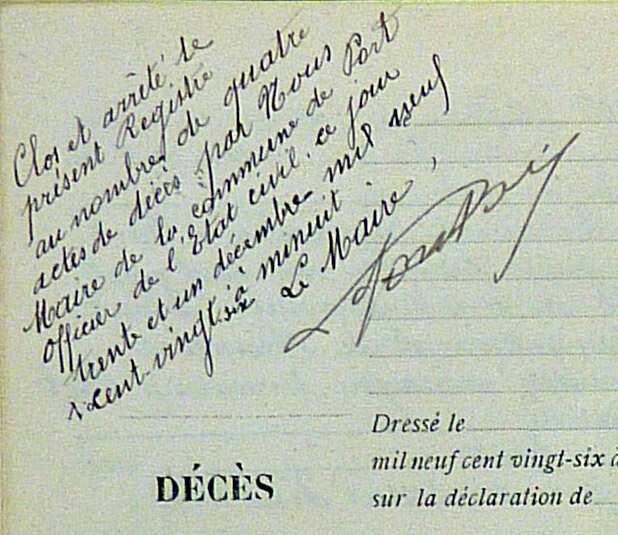 Clos et arrêté le
présent Registre
au nombre de quatre
actes de décès par Nous
Maire de la commune de Port
Officier de l'Etat civil, ce jour
trente et un décembre mil neuf
cent vingt-six à minuit.
Le Maire,
DÉCÈS
Dressé le
mil neuf cent vingt-six à
sur la déclaration de